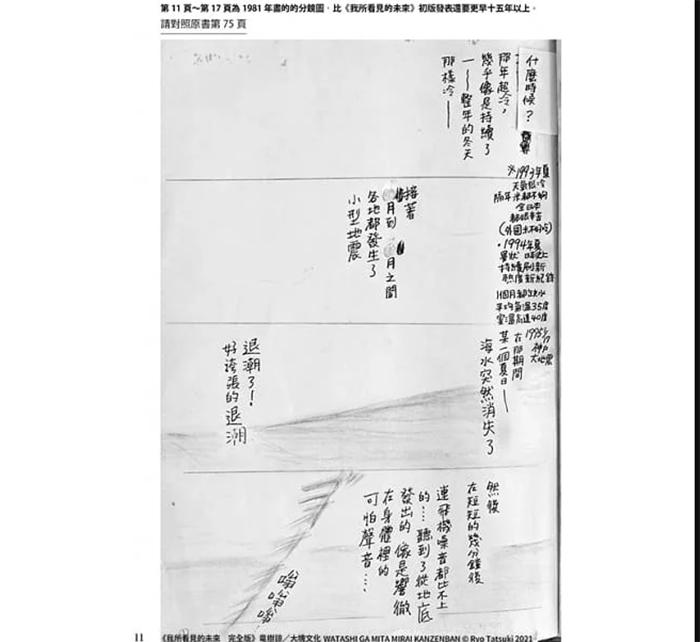 第 11 頁~第 17 頁為 1981 年畫的的分鏡圖，比《我所看見的未來》初版發表還要更早十五年以上。
請對照原書第 75 頁
什麼時候？
那年超冷，
幾乎像是持續了
一——整年的冬天
那樣冷——
※1993年夏
天氣很冷
隔年
(外國米不好吃)
・1994年夏
持續刷新
熱度新紀錄
平均氣溫35度
室溫高達40度
1995 1/17
神戶
大地震
接著
月到 月之間
各地都發生了
小型地震
在那期間
某一個夏日——
海水突然消失了
退潮了！
好誇張的退潮
然後
在短短的幾分鐘後
連飛機噪音都比不上
的…聽到了從地底
發出的 像是響徹
在身體裡的
可怕聲音……
嗡
嗡
嗡
11
《我所看見的未來 完全版》竜樹諒／大塊文化 WATASHI GA MITA MIRAI KANZENBAN © Ryo Tatsuki 2021